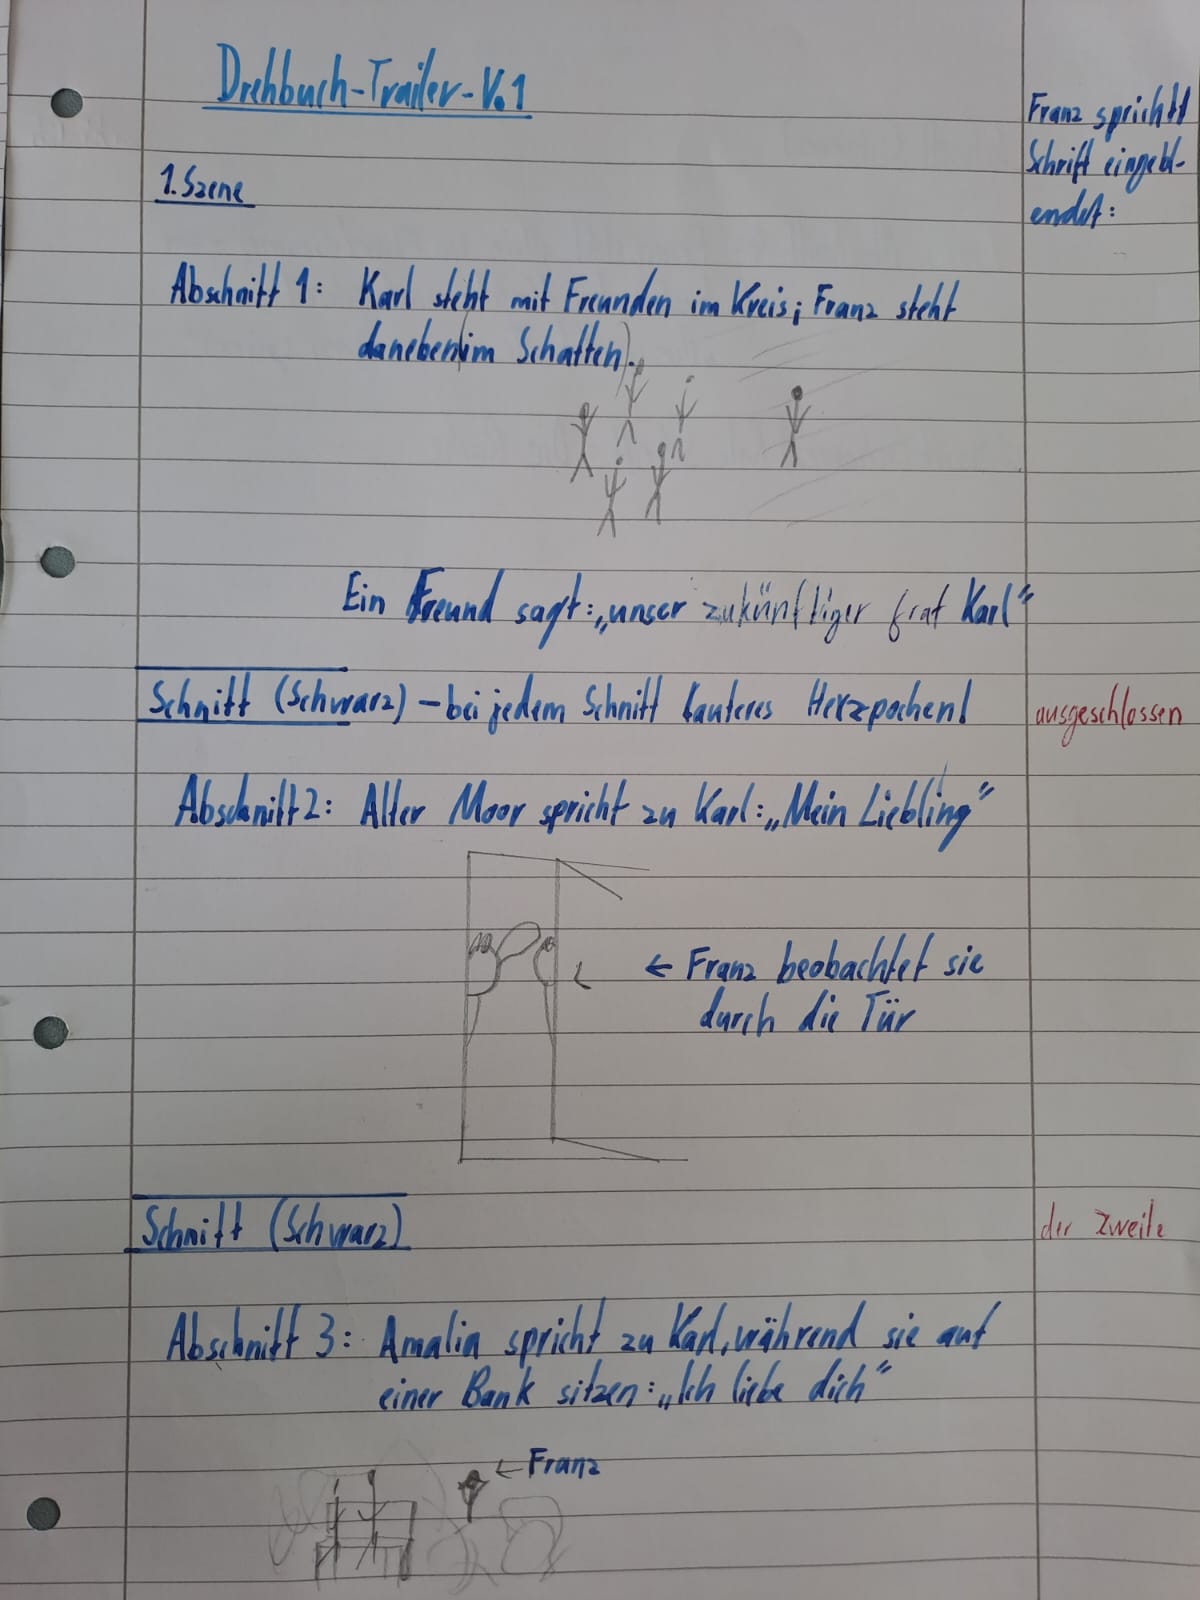 Drehbuch-Trailer-V.1
Franz spricht
Schrift eingebl-
endet:
1. Szene
Abschnitt 1: Karl steht mit Freunden im Kreis; Franz steht
daneben(im Schatten).
Ein Freund sagt: „unser zukünftiger Graf Karl"
Schnitt (Schwarz) - bei jedem Schnitt lauteres Herzpochen!
ausgeschlossen
Abschnitt 2: Alter Moor spricht zu Karl: „Mein Liebling"
← Franz beobachtet sie
durch die Tür
Schnitt (Schwarz)
der zweite
Abschnitt 3: Amalia spricht zu Karl, während sie auf
einer Bank sitzen: „Ich liebe dich"
← Franz